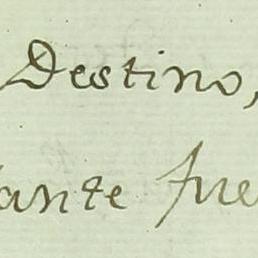 Destino,
ante fue